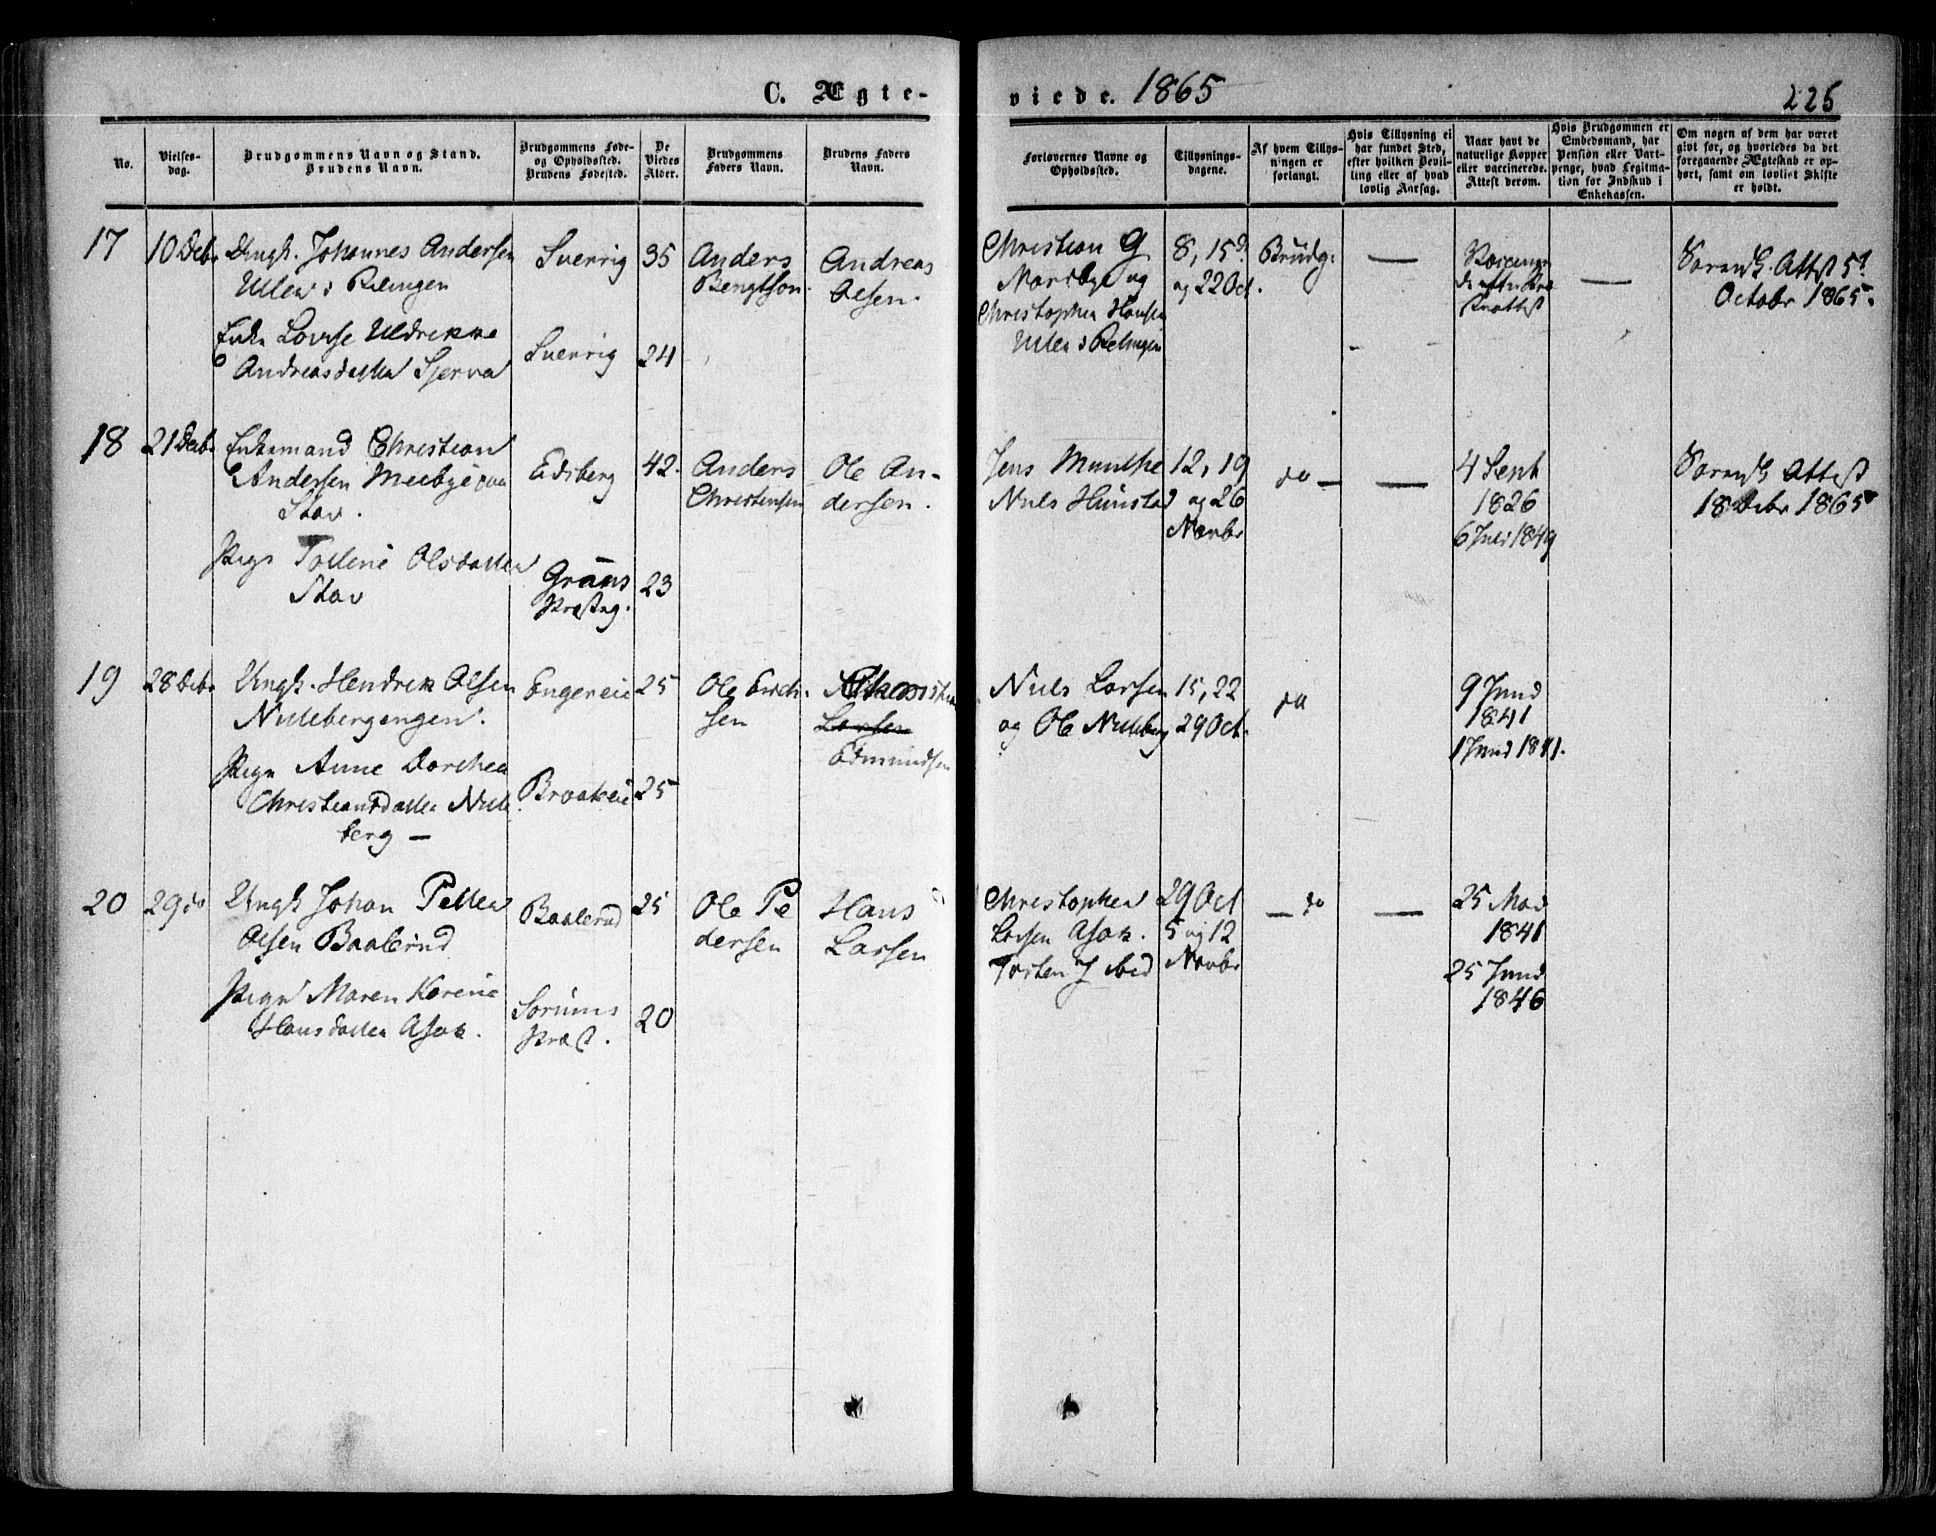 C. Ægte-
viede. 1865
225
No.
Vielses-
dag.
Brudgommens Navn og Stand.
Brudens Navn.
Brudgommens Føde-
og Opholdssted.
Brudens Fødested.
De
Viedes
Alder.
Brudgommens
Faders Navn.
Brudens Faders
Navn.
Forlovernes Navne og
Opholdssted.
Tillysnings-
dagene.
Af hvem Tillys-
ningen er
forlangt.
Hvis Tillysning ei
har fundet Sted,
efter hvilken Bevil-
ling eller af hvad
lovlig Aarsag.
Naar havt de
naturlige Kopper
eller vaccinerede.
Attest derom.
Hvis Brudgommen er
Embedsmand, har
Pension eller Vart-
penge, hvad Legitima-
tion for Indskud i
Enkekassen.
Om nogen af dem har været
givt før, og hvorledes da det
foregaaende Ægteskab er op-
hørt, samt om lovligt Skifte
er holdt.
17
10 Decbr
Ungk. Johannes Andersen
Ullev i Relingen
Enke Lovise Uldrikke
Andreasdatter Sjerva
Sverrig
Sverrig
35
24
Anders
Bengtson.
Andreas
Olsen.
Christian G
Mordbye og
Christopher Hansen
Ullev i Relingen
8, 15d
og 22 Oct.
Brudg.
—
—
Attest 5t
October 1865.
18
21 Decbr
Enkemand Christian
Andersen
Stav.
Pige Olsdatter
Stav
Edsberg
Præsteg.
42.
23
Anders
Christensen
Ole An-
dersen.
Jens Munthe
Niels Hunstad
12, 19
og 26
Novbr
do —
—
4 Sept
1826
6 Juli 1849
Attest
18 Debr 1865
19
28 Debr
Ungk. Hendrik Olsen
Nittebergengen.
Pige Anne Dorthea
Christiansdatter Nitte
berg —
Engereie
Braateeie
25
25
Ole Erich-
sen
Larsen
Edmundsen
Niels Larsen
og Ole Nitteberg
15, 22
29 Oct.
do
9 Juni
1841
1 Juni 1841.
20
29 do
Ungk Johan Petter
Olsen Baalerud
Pige Maren Karine
Hansdatter Asak.
Baalerud
Sørums
Præst.
25
20
Ole Pe
dersen
Hans
Larsen
Christopher
Larsen Asak.
Torsten J ibid
29 Oct
5 og 12
Novbr
— do
—
25 Mai
1841
25 Juni
1846